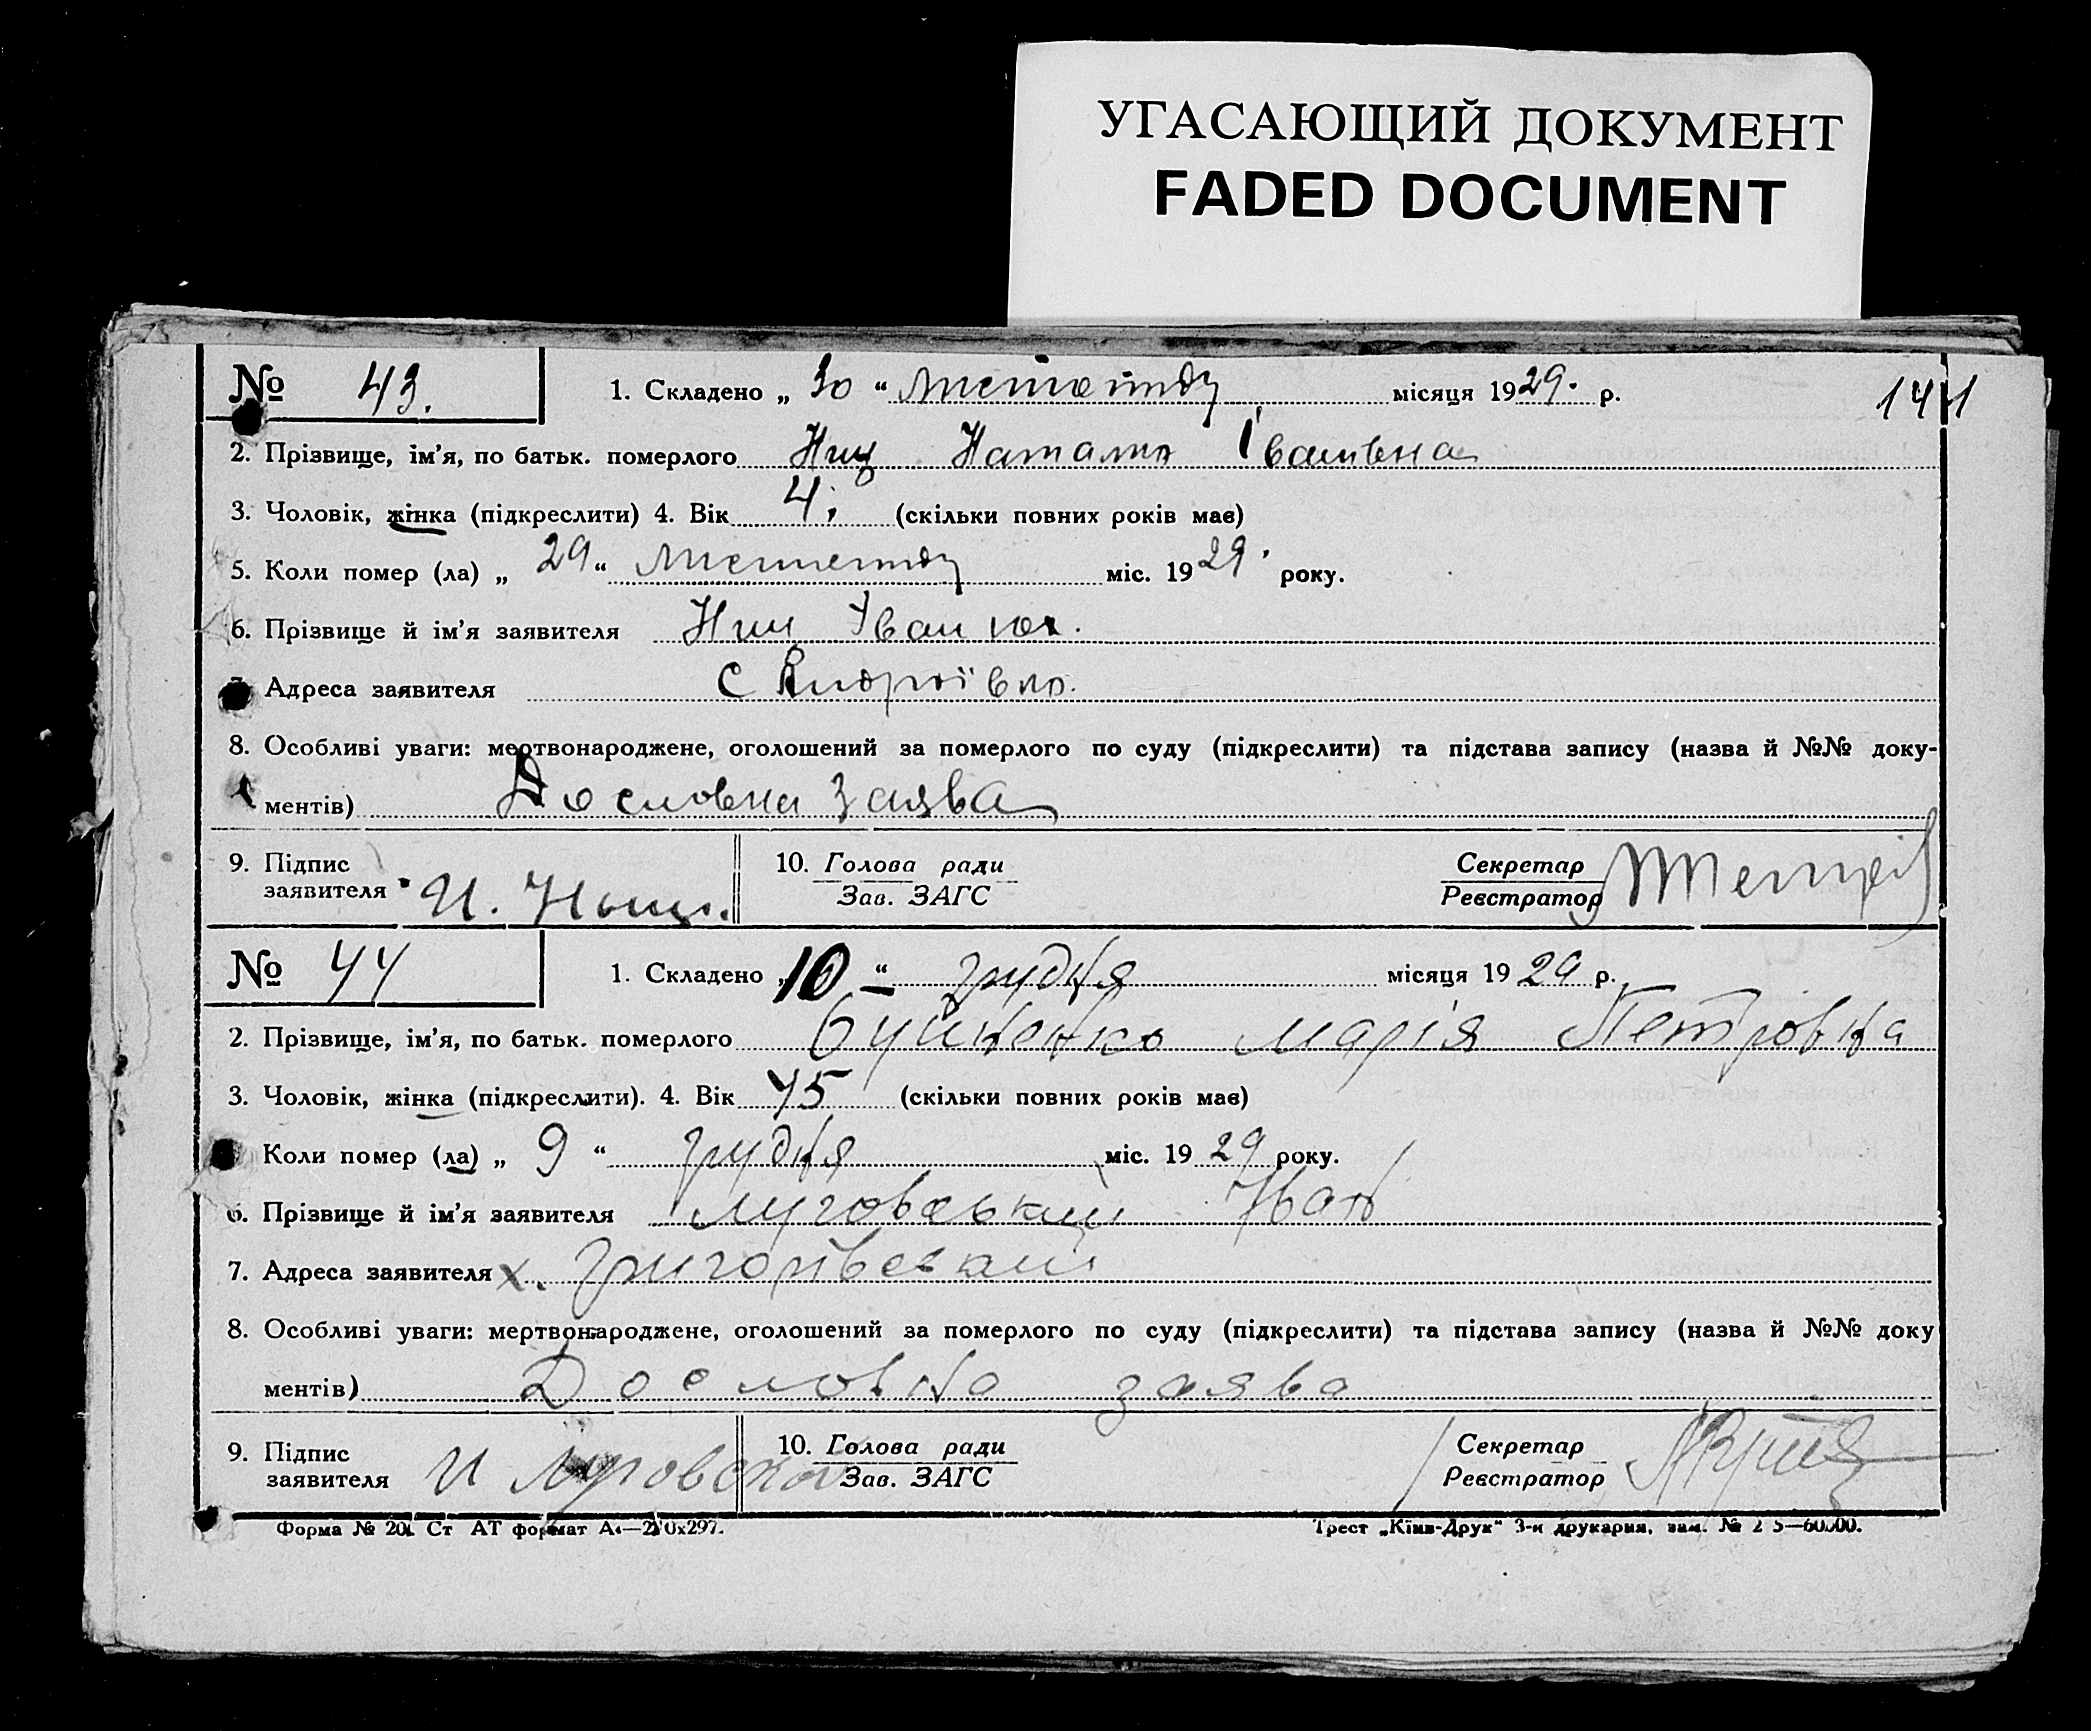 УГАСАЮЩИЙ ДОКУМЕНТ
FADED DOCUMENT
№ 43. 1. Складено „ 30 “ листопаду місяця 1929. р. 141
2. Прізвище, ім'я, по батьк. померлого Нищ Наталка Іванівна
3. Чоловік, жінка (підкреслити) 4. Вік 4. (скільки повних років має)
5. Коли помер (ла) „ 29 “ листопаду міс. 1929. року.
6. Прізвище й ім'я заявителя Нищ Іван
Адреса заявителя с Андріївка.
8. Особливі уваги: мертвонароджене, оголошений за померлого по суду (підкреслити) та підстава запису (назва й №№ доку-
ментів) Дословна заява
9. Підпис заявителя И. Нищ. 10. Голова ради Зав. ЗАГС Секретар Реєстратор
№ 44 1. Складено „ 10 “ грудня місяця 1929 р.
2. Прізвище, ім'я, по батьк. померлого Марія Петровна
3. Чоловік, жінка (підкреслити). 4. Вік 45 (скільки повних років має)
Коли помер (ла) „ 9 “ грудня міс. 1929 року.
6. Прізвище й ім'я заявителя Луговський Іван
7. Адреса заявителя х. Григорівський
8. Особливі уваги: мертвонароджене, оголошений за померлого по суду (підкреслити) та підстава запису (назва й №№ доку
ментів) Дословна заява
9. Підпис заявителя И Луговской 10. Голова ради Зав. ЗАГС Секретар Реєстратор
Форма № 20 Ст АТ формат А4—210х297. Трест „Київ-Друк“ 3-я друкарня, зам. №